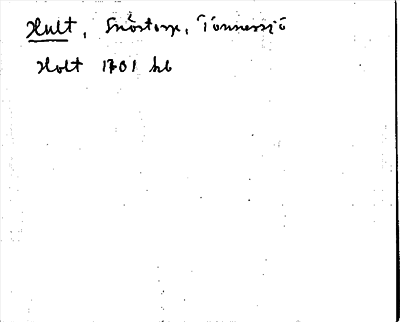 Hult, Snöstorp, Tönnersjö
Holt 1701 hb